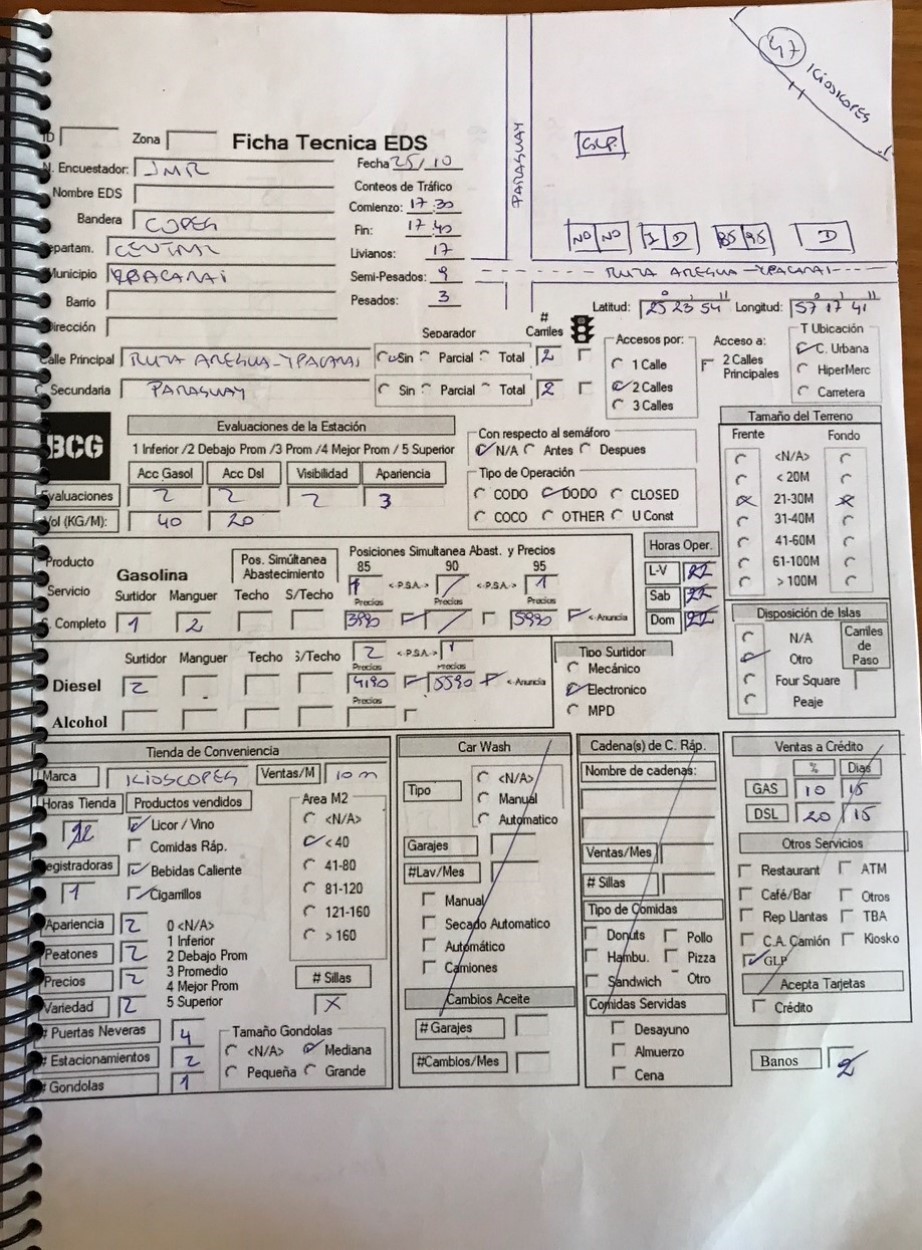 47
KIOSKOPEG
PARAGUAY
GLP
ID Zona Ficha Tecnica EDS
N. Encuestador: JMR
Fecha 25/10
Nombre EDS
Conteos de Tráfico
Bandera COPEG
Comienzo: 17:30
Fin: 17:40
NO NO I D 85 95 D
Departam. CENTRAL
Livianos: 17
Municipio YPACARAI
Semi-Pesados: 9
RUTA AREGUA-YPACARAI
Barrio
Pesados: 3
Latitud: 25 23 54 Longitud: 57 17 41
Dirección
Separador # Carriles
Accesos por: Acceso a: T Ubicación
Calle Principal RUTA AREGUA-YPACARAI Sin Parcial Total 2
1 Calle 2 Calles Principales C. Urbana
C. Secundaria PARAGUAY Sin Parcial Total 2
2 Calles HiperMerc
3 Calles Carretera
BCG
Evaluaciones de la Estación
1 Inferior /2 Debajo Prom /3 Prom /4 Mejor Prom / 5 Superior
Acc Gasol Acc Dsl Visibilidad Apariencia
Evaluaciones 2 2 2 3
Vol (KG/M): 40 20
Con respecto al semáforo
N/A Antes Despues
Tipo de Operación
CODO DODO CLOSED
COCO OTHER U Const
Tamaño del Terreno
Frente Fondo
<N/A>
< 20M
21-30M
31-40M
41-60M
61-100M
> 100M
Producto
Servicio
Gasolina
Pos. Simúltanea Abastecimiento
Posiciones Simultanea Abast. y Precios
85 90 95
1 <-P.S.A.-> / <-P.S.A.-> 1
Surtidor Manguer Techo S/Techo Precios Precios Precios
S. Completo 1 2 3990 / 5990 <-Anuncia
Horas Oper.
L-V 22
Sab 22
Dom 22
Disposición de Islas
N/A
Otro
Four Square
Peaje
Carriles de Paso
Surtidor Manguer Techo S/Techo 2 <-P.S.A.-> 1
Precios Precios
Diesel 2 4190 5590 <-Anuncia
Precios
Alcohol
Tipo Surtidor
Mecánico
Electronico
MPD
Tienda de Conveniencia
Marca KIOSCOPEG Ventas/M 10 m
Horas Tienda Productos vendidos Area M2
Licor / Vino <N/A>
Comidas Ráp. < 40
Registradoras Bebidas Caliente 41-80
1 Cigarrillos 81-120
Apariencia 2 0 <N/A> 121-160
1 Inferior > 160
Peatones 2 2 Debajo Prom
Precios 2 3 Promedio
4 Mejor Prom # Sillas
Variedad 2 5 Superior X
# Puertas Neveras 4 Tamaño Gondolas
# Estacionamientos 2 <N/A> Mediana
# Gondolas 1 Pequeña Grande
Car Wash
Tipo <N/A>
Manual
Automatico
Garajes
#Lav/Mes
Manual
Secado Automatico
Automático
Camiones
Cambios Aceite
# Garajes
#Cambios/Mes
Cadena(s) de C. Ráp.
Nombre de cadenas:
Ventas/Mes
# Sillas
Tipo de Comidas
Donuts Pollo
Hambu. Pizza
Sandwich Otro
Comidas Servidas
Desayuno
Almuerzo
Cena
Ventas a Crédito
% Dias
GAS 10 15
DSL 20 15
Otros Servicios
Restaurant ATM
Café/Bar Otros
Rep Llantas TBA
C.A. Camión Kiosko
GLP
Acepta Tarjetas
Crédito
Banos 2